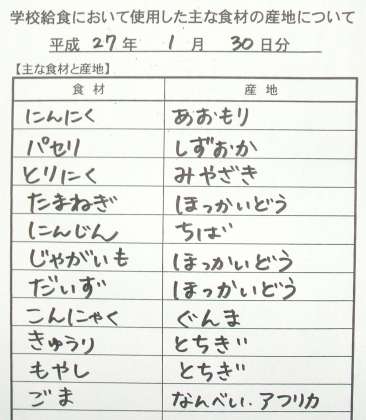 学校給食において使用した主な食材の産地について
平成 27年 1月 30日分
【主な食材と産地】
食材 産地
にんにく あおもり
パセリ しずおか
とりにく みやざき
たまねぎ ほっかいどう
にんじん ちば
じゃがいも ほっかいどう
だいず ほっかいどう
こんにゃく ぐんま
きゅうり とちぎ
もやし とちぎ
ごま なんべい.アフリカ